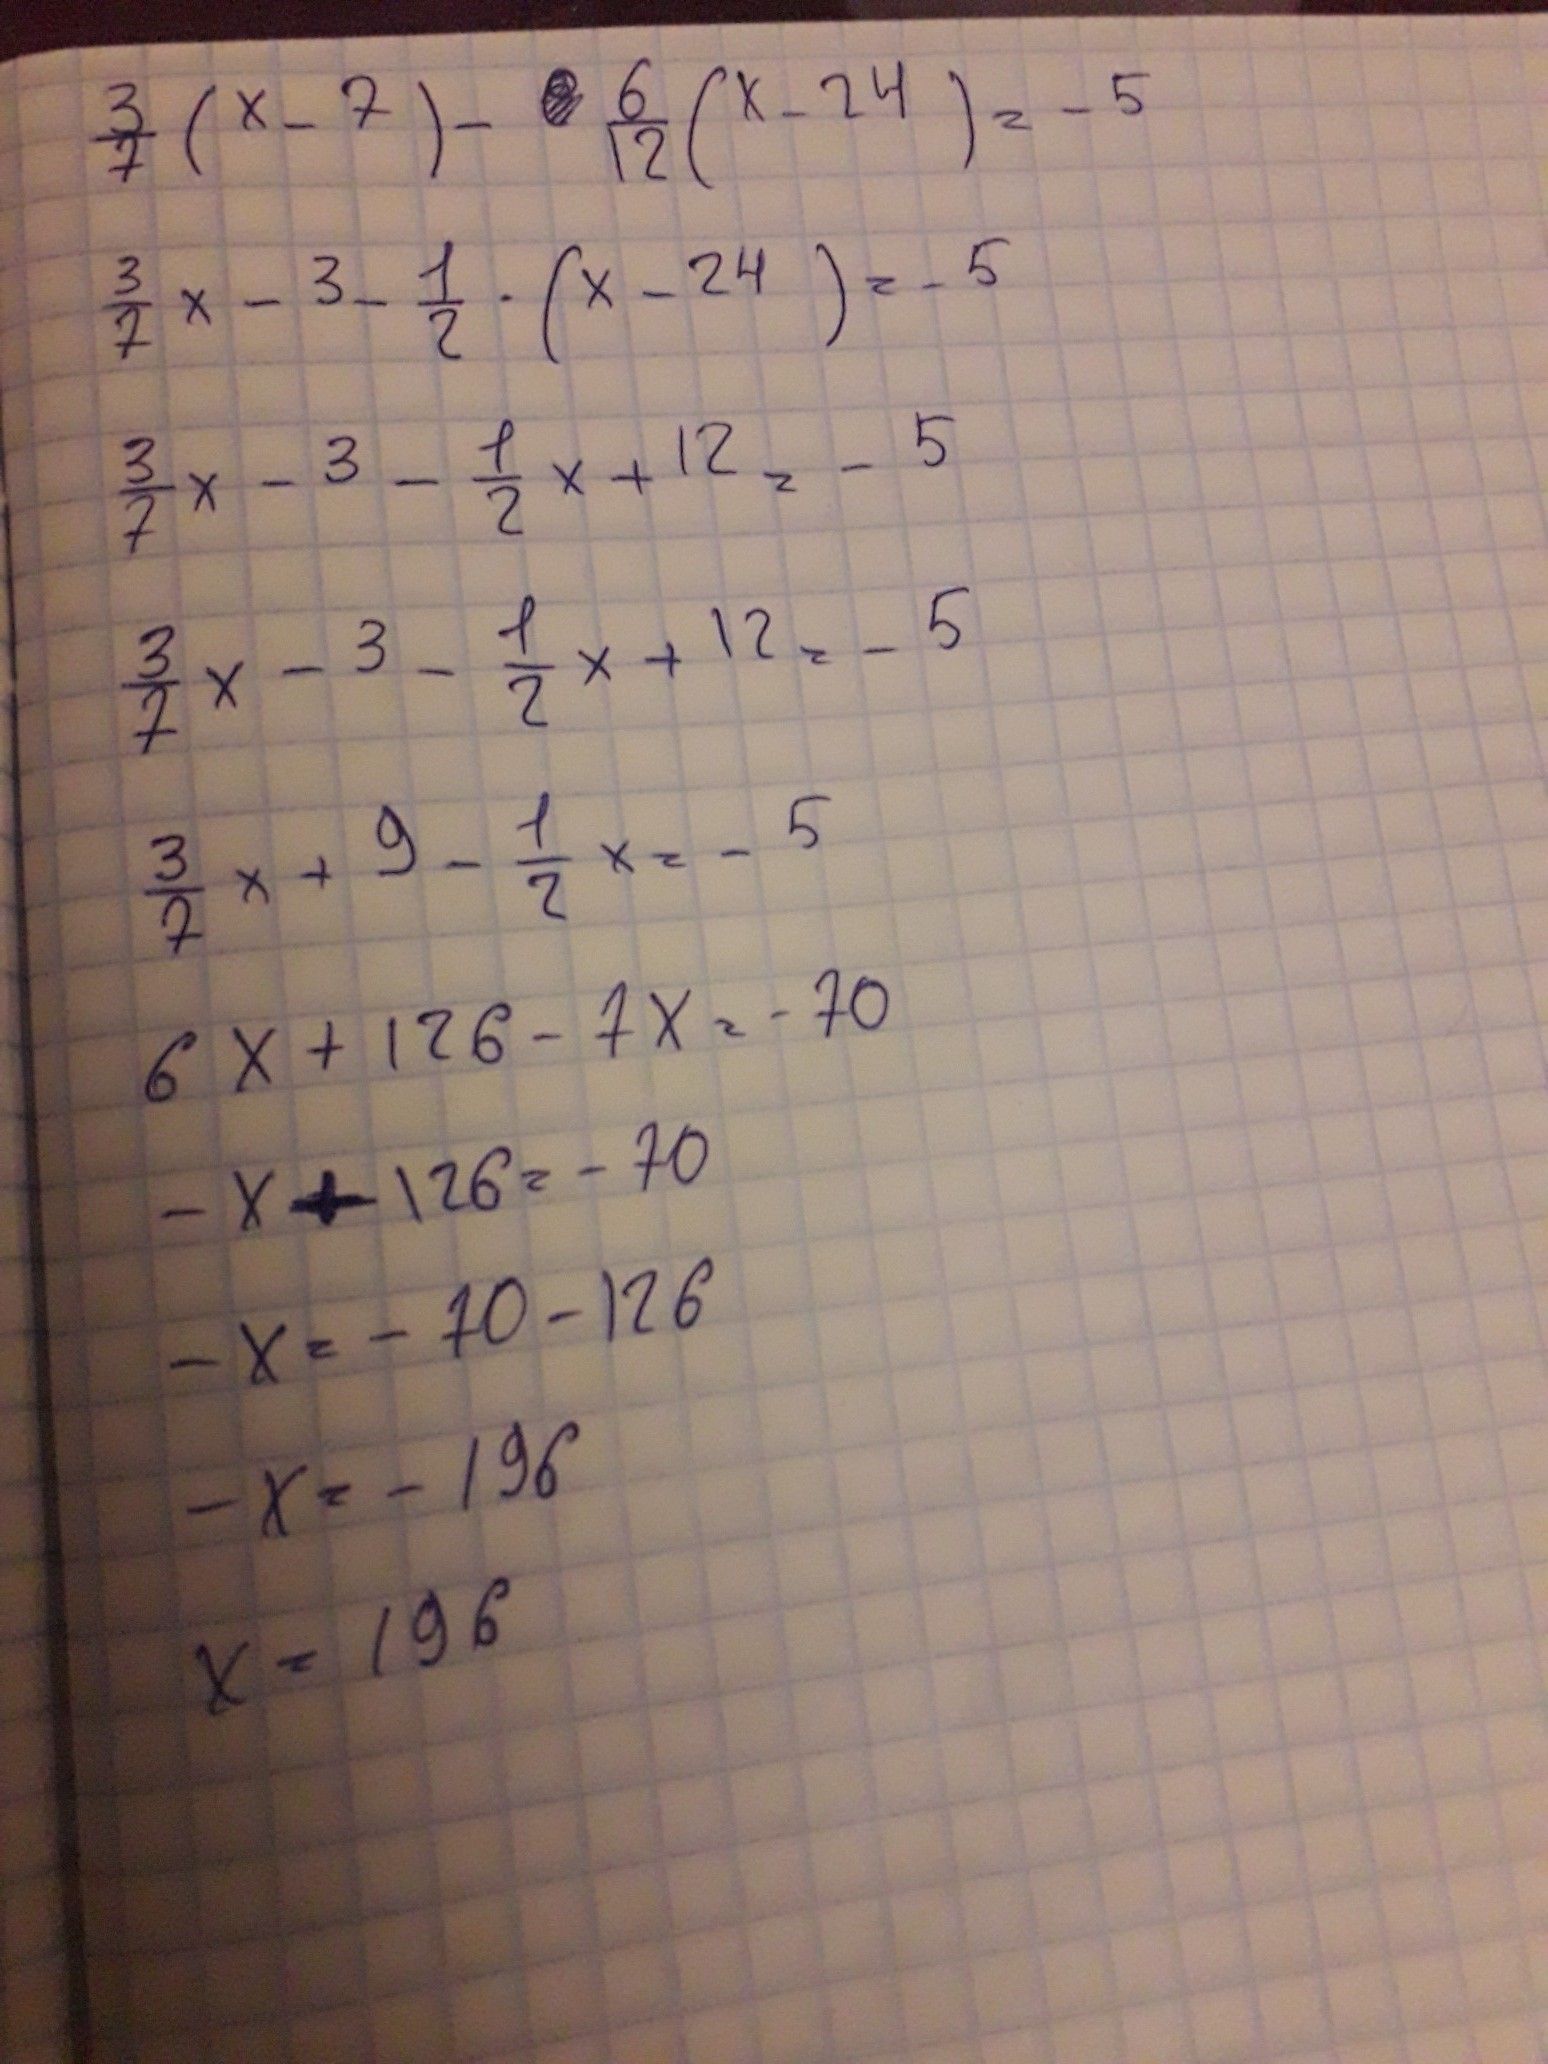 3/7 (x - 7) - 6/12 (x - 24) = - 5
3/7 x - 3 - 1/2 · (x - 24) = - 5
3/7 x - 3 - 1/2 x + 12 = - 5
3/7 x - 3 - 1/2 x + 12 = - 5
3/7 x + 9 - 1/2 x = - 5
6x + 126 - 7x = - 70
- x + 126 = - 70
- x = - 70 - 126
- x = - 196
x = 196